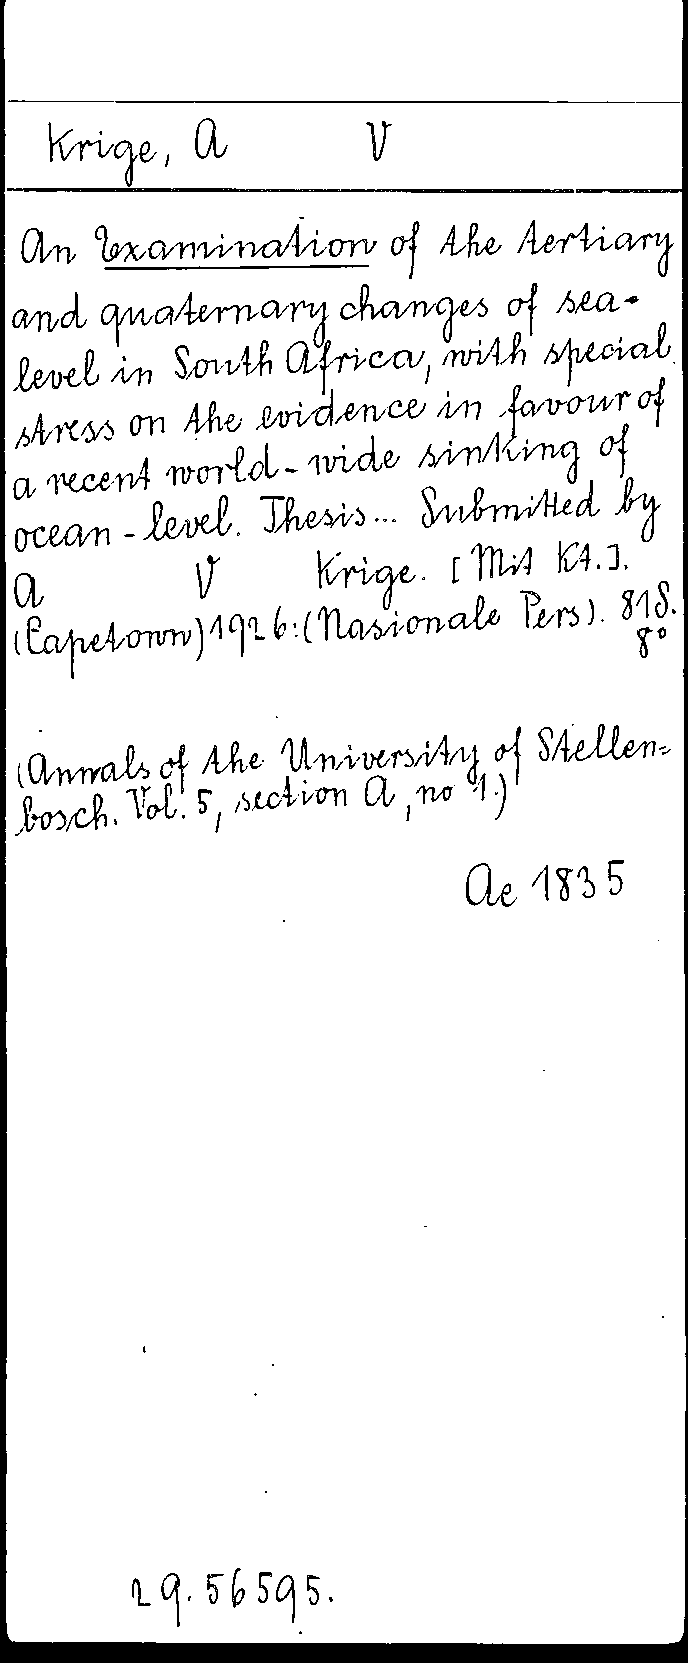 Krige, A V
An Examination of the tertiary
and quaternary changes of sea-
level in South Africa, with special
stress on the evidence in favour of
a recent world-wide sinking of
ocean-level. Thesis... Submitted by
A V Krige. [Mit Kt.].
(Capetown) 1926: (Nasionale Pers). 81 S.
8°
(Annals of the University of Stellen=
bosch. Vol. 5, section A, no 1.)
Ae 1835
29.56595.